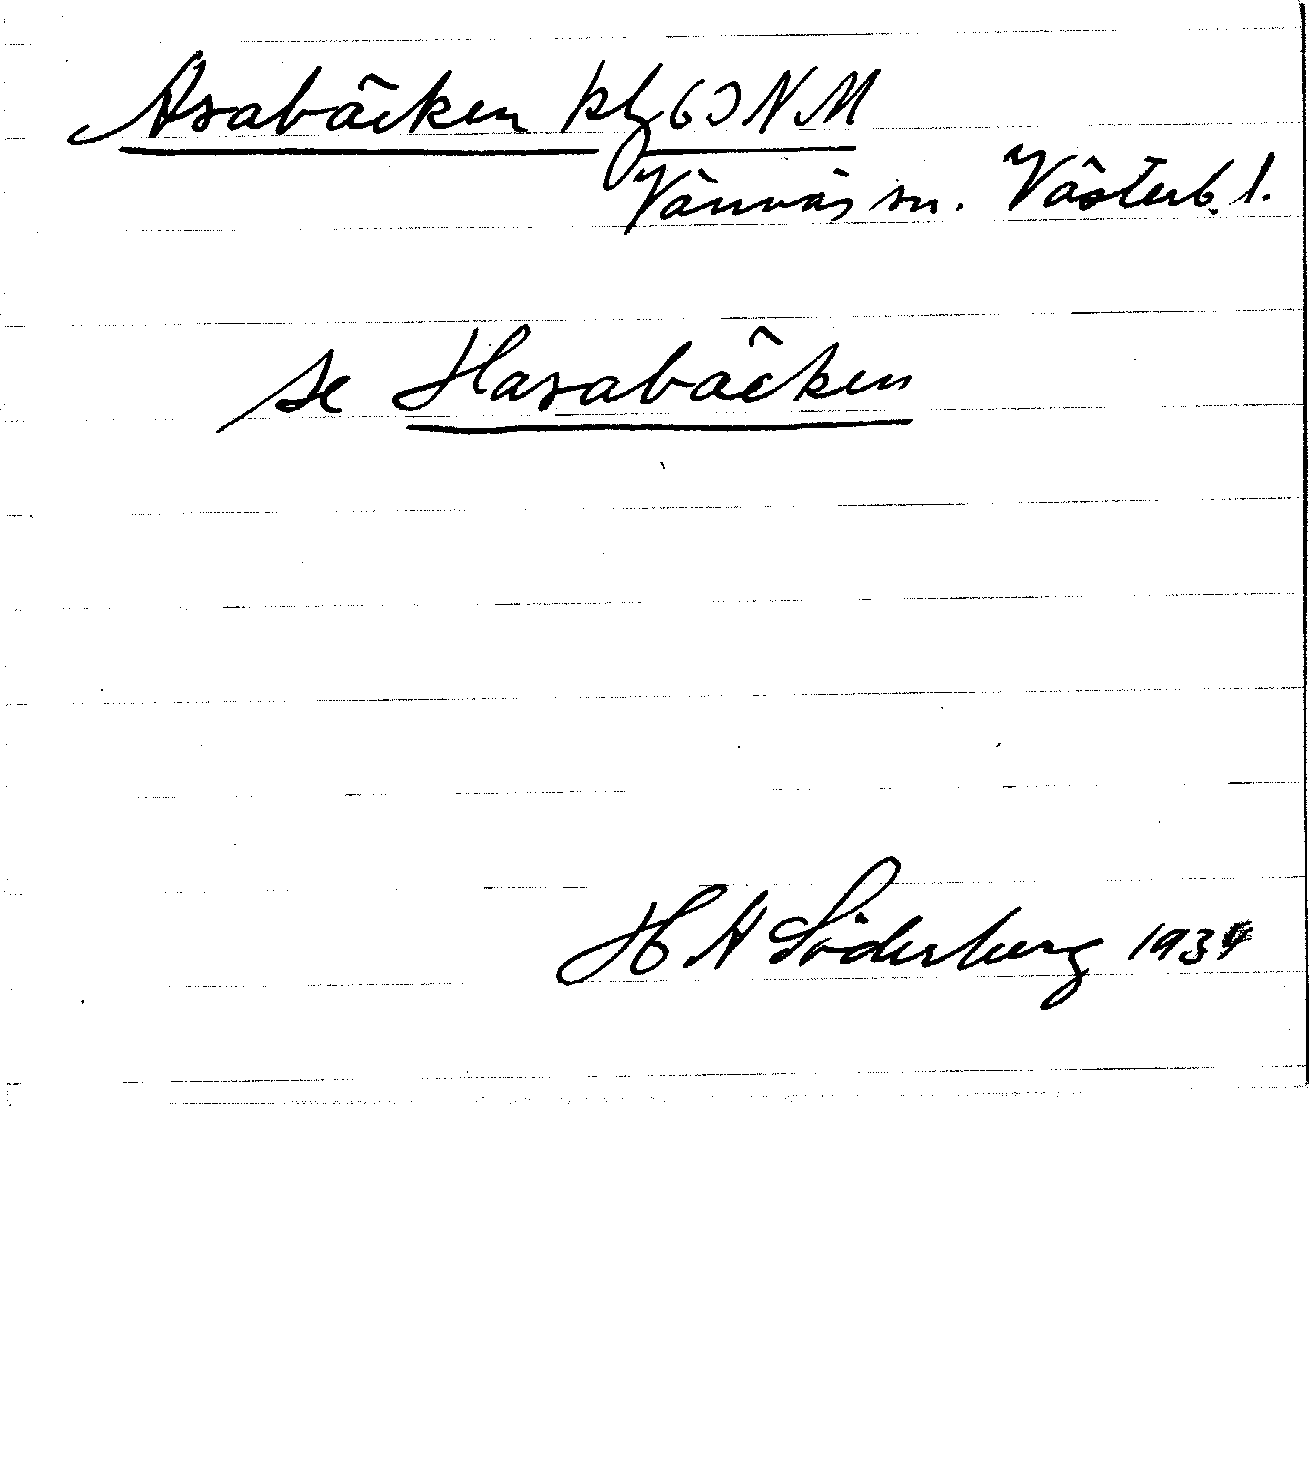 Asabäcken kbl 63 NM
Vännäs sn. Västerb. l.
se Hasabäcken
H A Söderberg 1934